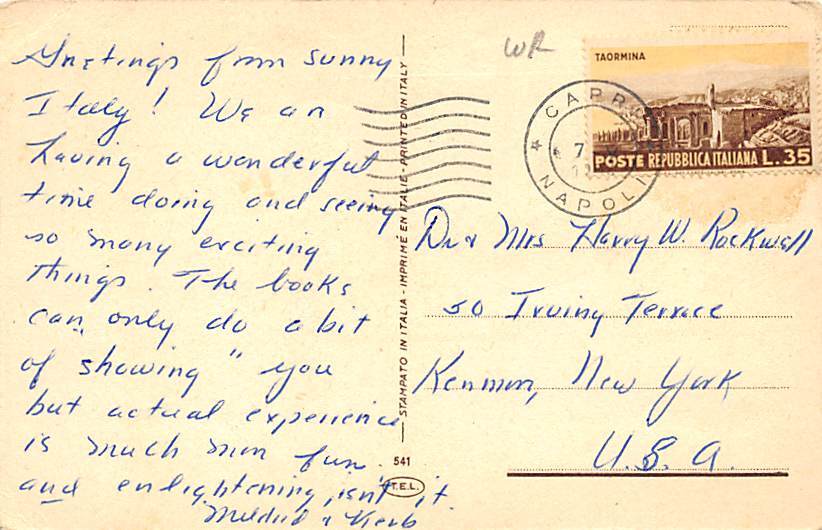 Greetings from sunny
Italy! We are
having a wonderful
time doing and seeing
so many exciting
things. The books
can only do a bit
of showing " you
but actual experience
is much more fun
and enlightening, isn't it.
Mildred & Herb
STAMPATO IN ITALIA - IMPRIMÉ EN ITALIE - PRINTED IN ITALY
541
T.E.L.
WR
TAORMINA
POSTE REPUBBLICA ITALIANA L. 35
CAPRI
7
NAPOLI
Dr & Mrs Harry W. Rockwell
50 Irving Terrace
Kenmore, New York
U.S.A.